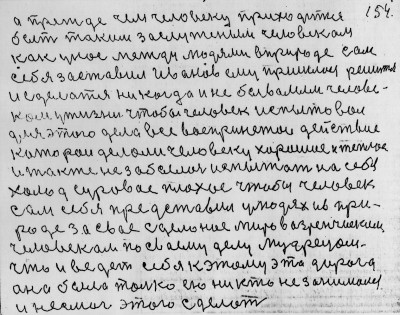 154.
а прежде чем человеку приходится
быть таким заслуженым человекам
как умое между людями в природе сам
себя заставил Иванов ему пришлось решится
и сделатся никогда и не бывалим челове-
ком у жизни чтобы человек испытовал
для этого дела все воспринетое действие
каторои делали человеку хорошие и теплое
и такте незабыл от испытат на себе
холод суровае плохое чтобы человек
сам себя представил у людях и в при-
роде за свае сделоное мировозренческим
человекам по своему делу мудрецом.
что и ведет себя к этому эта дорога
ана была только ею никто незанималса
и несмог этого сделать